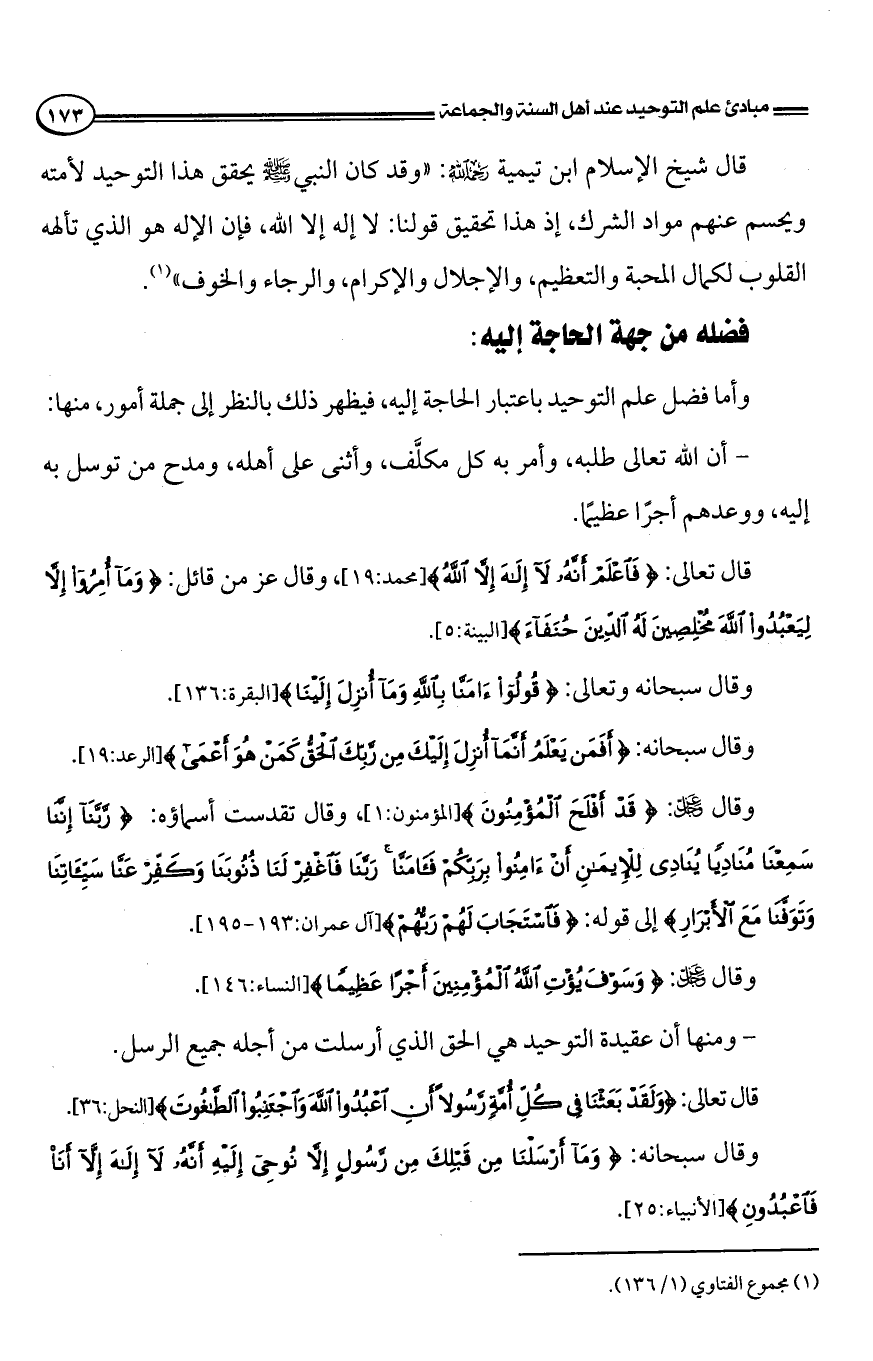 مبادئ علم التوحيد عند أهل السنة والجماعة ١٧٣
قال شيخ الإسلام ابن تيمية رحمه الله: «وقد كان النبي ﷺ يحقق هذا التوحيد لأمته
ويحسم عنهم مواد الشرك، إذ هذا تحقيق قولنا: لا إله إلا الله، فإن الإله هو الذي تألهه
القلوب لكمال المحبة والتعظيم، والإجلال والإكرام، والرجاء والخوف»(١).
فضله من جهة الحاجة إليه:
وأما فضل علم التوحيد باعتبار الحاجة إليه، فيظهر ذلك بالنظر إلى جملة أمور، منها:
– أن الله تعالى طلبه، وأمر به كل مكلَّف، وأثنى على أهله، ومدح من توسل به
إليه، ووعدهم أجرًا عظيمًا.
قال تعالى: ﴿ فَٱعْلَمْ أَنَّهُۥ لَآ إِلَٰهَ إِلَّا ٱللَّهُ ﴾[محمد:١٩]، وقال عز من قائل: ﴿ وَمَآ أُمِرُوٓا۟ إِلَّا
لِيَعْبُدُوا۟ ٱللَّهَ مُخْلِصِينَ لَهُ ٱلدِّينَ حُنَفَآءَ ﴾[البينة:٥].
وقال سبحانه وتعالى: ﴿ قُولُوٓا۟ ءَامَنَّا بِٱللَّهِ وَمَآ أُنزِلَ إِلَيْنَا ﴾[البقرة:١٣٦].
وقال سبحانه: ﴿ أَفَمَن يَعْلَمُ أَنَّمَآ أُنزِلَ إِلَيْكَ مِن رَّبِّكَ ٱلْحَقُّ كَمَنْ هُوَ أَعْمَىٰٓ ﴾[الرعد:١٩].
وقال ﷻ: ﴿ قَدْ أَفْلَحَ ٱلْمُؤْمِنُونَ ﴾[المؤمنون:١]، وقال تقدست أسماؤه: ﴿ رَّبَّنَآ إِنَّنَا
سَمِعْنَا مُنَادِيًا يُنَادِى لِلْإِيمَٰنِ أَنْ ءَامِنُوا۟ بِرَبِّكُمْ فَـَٔامَنَّا ۚ رَبَّنَا فَٱغْفِرْ لَنَا ذُنُوبَنَا وَكَفِّرْ عَنَّا سَيِّـَٔاتِنَا
وَتَوَفَّنَا مَعَ ٱلْأَبْرَارِ ﴾ إلى قوله: ﴿ فَٱسْتَجَابَ لَهُمْ رَبُّهُمْ ﴾[آل عمران:١٩٣-١٩٥].
وقال ﷻ: ﴿ وَسَوْفَ يُؤْتِ ٱللَّهُ ٱلْمُؤْمِنِينَ أَجْرًا عَظِيمًا ﴾[النساء:١٤٦].
– ومنها أن عقيدة التوحيد هي الحق الذي أرسلت من أجله جميع الرسل.
قال تعالى: ﴿وَلَقَدْ بَعَثْنَا فِى كُلِّ أُمَّةٍ رَّسُولًا أَنِ ٱعْبُدُوا۟ ٱللَّهَ وَٱجْتَنِبُوا۟ ٱلطَّٰغُوتَ ﴾[النحل:٣٦].
وقال سبحانه: ﴿ وَمَآ أَرْسَلْنَا مِن قَبْلِكَ مِن رَّسُولٍ إِلَّا نُوحِىٓ إِلَيْهِ أَنَّهُۥ لَآ إِلَٰهَ إِلَّآ أَنَا۠
فَٱعْبُدُونِ ﴾[الأنبياء:٢٥].
(١) مجموع الفتاوي (١/ ١٣٦).